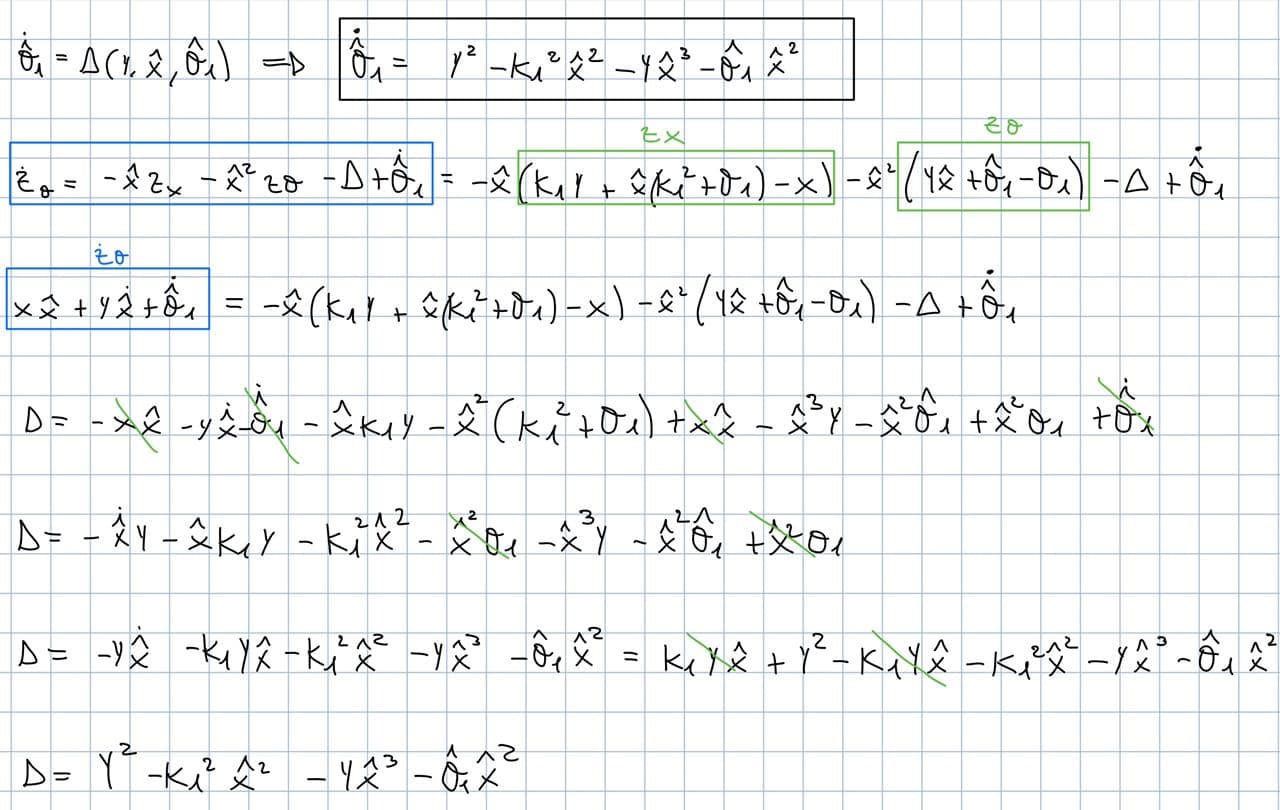 θ̂̇₁ = Δ(y, x̂, θ̂₁) ⇒ θ̂̇₁ = y² - k₁²x̂² - yx̂³ - θ̂₁x̂²
zx zθ
ż_θ = -x̂z_x - x̂²zθ - Δ + θ̂̇₁ = -x̂(k₁y + x̂(k₁²+θ₁) - x) - x̂²(yx̂ + θ̂₁ - θ₁) - Δ + θ̂̇₁
żθ
xx̂ + yx̂̇ + θ̂̇₁ = -x̂(k₁y + x̂(k₁²+θ₁) - x) - x̂²(yx̂ + θ̂₁ - θ₁) - Δ + θ̂̇₁
Δ = -xx̂ - yx̂̇ - θ̂̇₁ - x̂k₁y - x̂²(k₁²+θ₁) + xx̂ - x̂³y - x̂²θ̂₁ + x̂²θ₁ + θ̂̇₁
Δ = -x̂̇y - x̂k₁y - k₁²x̂² - x̂²θ₁ - x̂³y - x̂²θ̂₁ + x̂²θ₁
Δ = -yx̂̇ - k₁yx̂ - k₁²x̂² - yx̂³ - θ̂₁x̂² = k₁yx̂ + y² - k₁yx̂ - k₁²x̂² - yx̂³ - θ̂₁x̂²
Δ = y² - k₁²x̂² - yx̂³ - θ̂₁x̂²